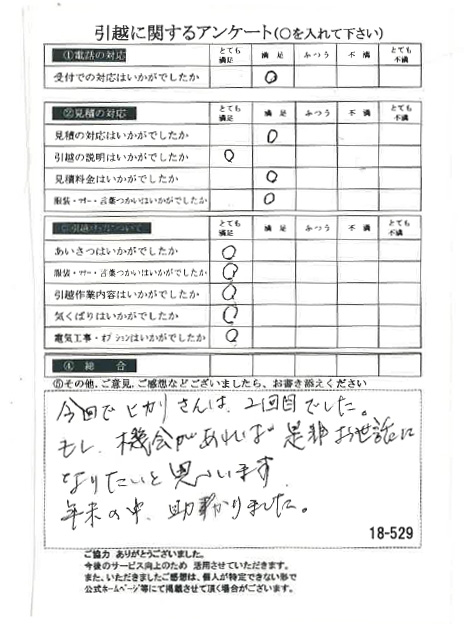 引越に関するアンケート(〇を入れて下さい)
①電話の対応 とても満足 満足 ふつう 不満 とても不満
受付での対応はいかがでしたか ○
②見積の対応 とても満足 満足 ふつう 不満 とても不満
見積の対応はいかがでしたか ○
引越の説明はいかがでしたか ○
見積料金はいかがでしたか ○
服装・マナー・言葉つかいはいかがでしたか ○
とても満足 満足 ふつう 不満 とても不満
あいさつはいかがでしたか ○
服装・マナー・言葉つかいはいかがでしたか ○
引越作業内容はいかがでしたか ○
気くばりはいかがでしたか ○
電気工事・オプションはいかがでしたか ○
④総合
⑤その他、ご意見、ご感想などございましたら、お書き添えください
今回でヒカリさんは、2回目でした。
もし、機会があれば是非お世話に
なりたいと思います
年末の中、助かりました。
18-529
ご協力 ありがとうございました。
今後のサービス向上のため 活用させていただきます。
また、いただきましたご感想は、個人が特定できない形で
公式ホームページ等にて掲載させて頂く場合がございます。